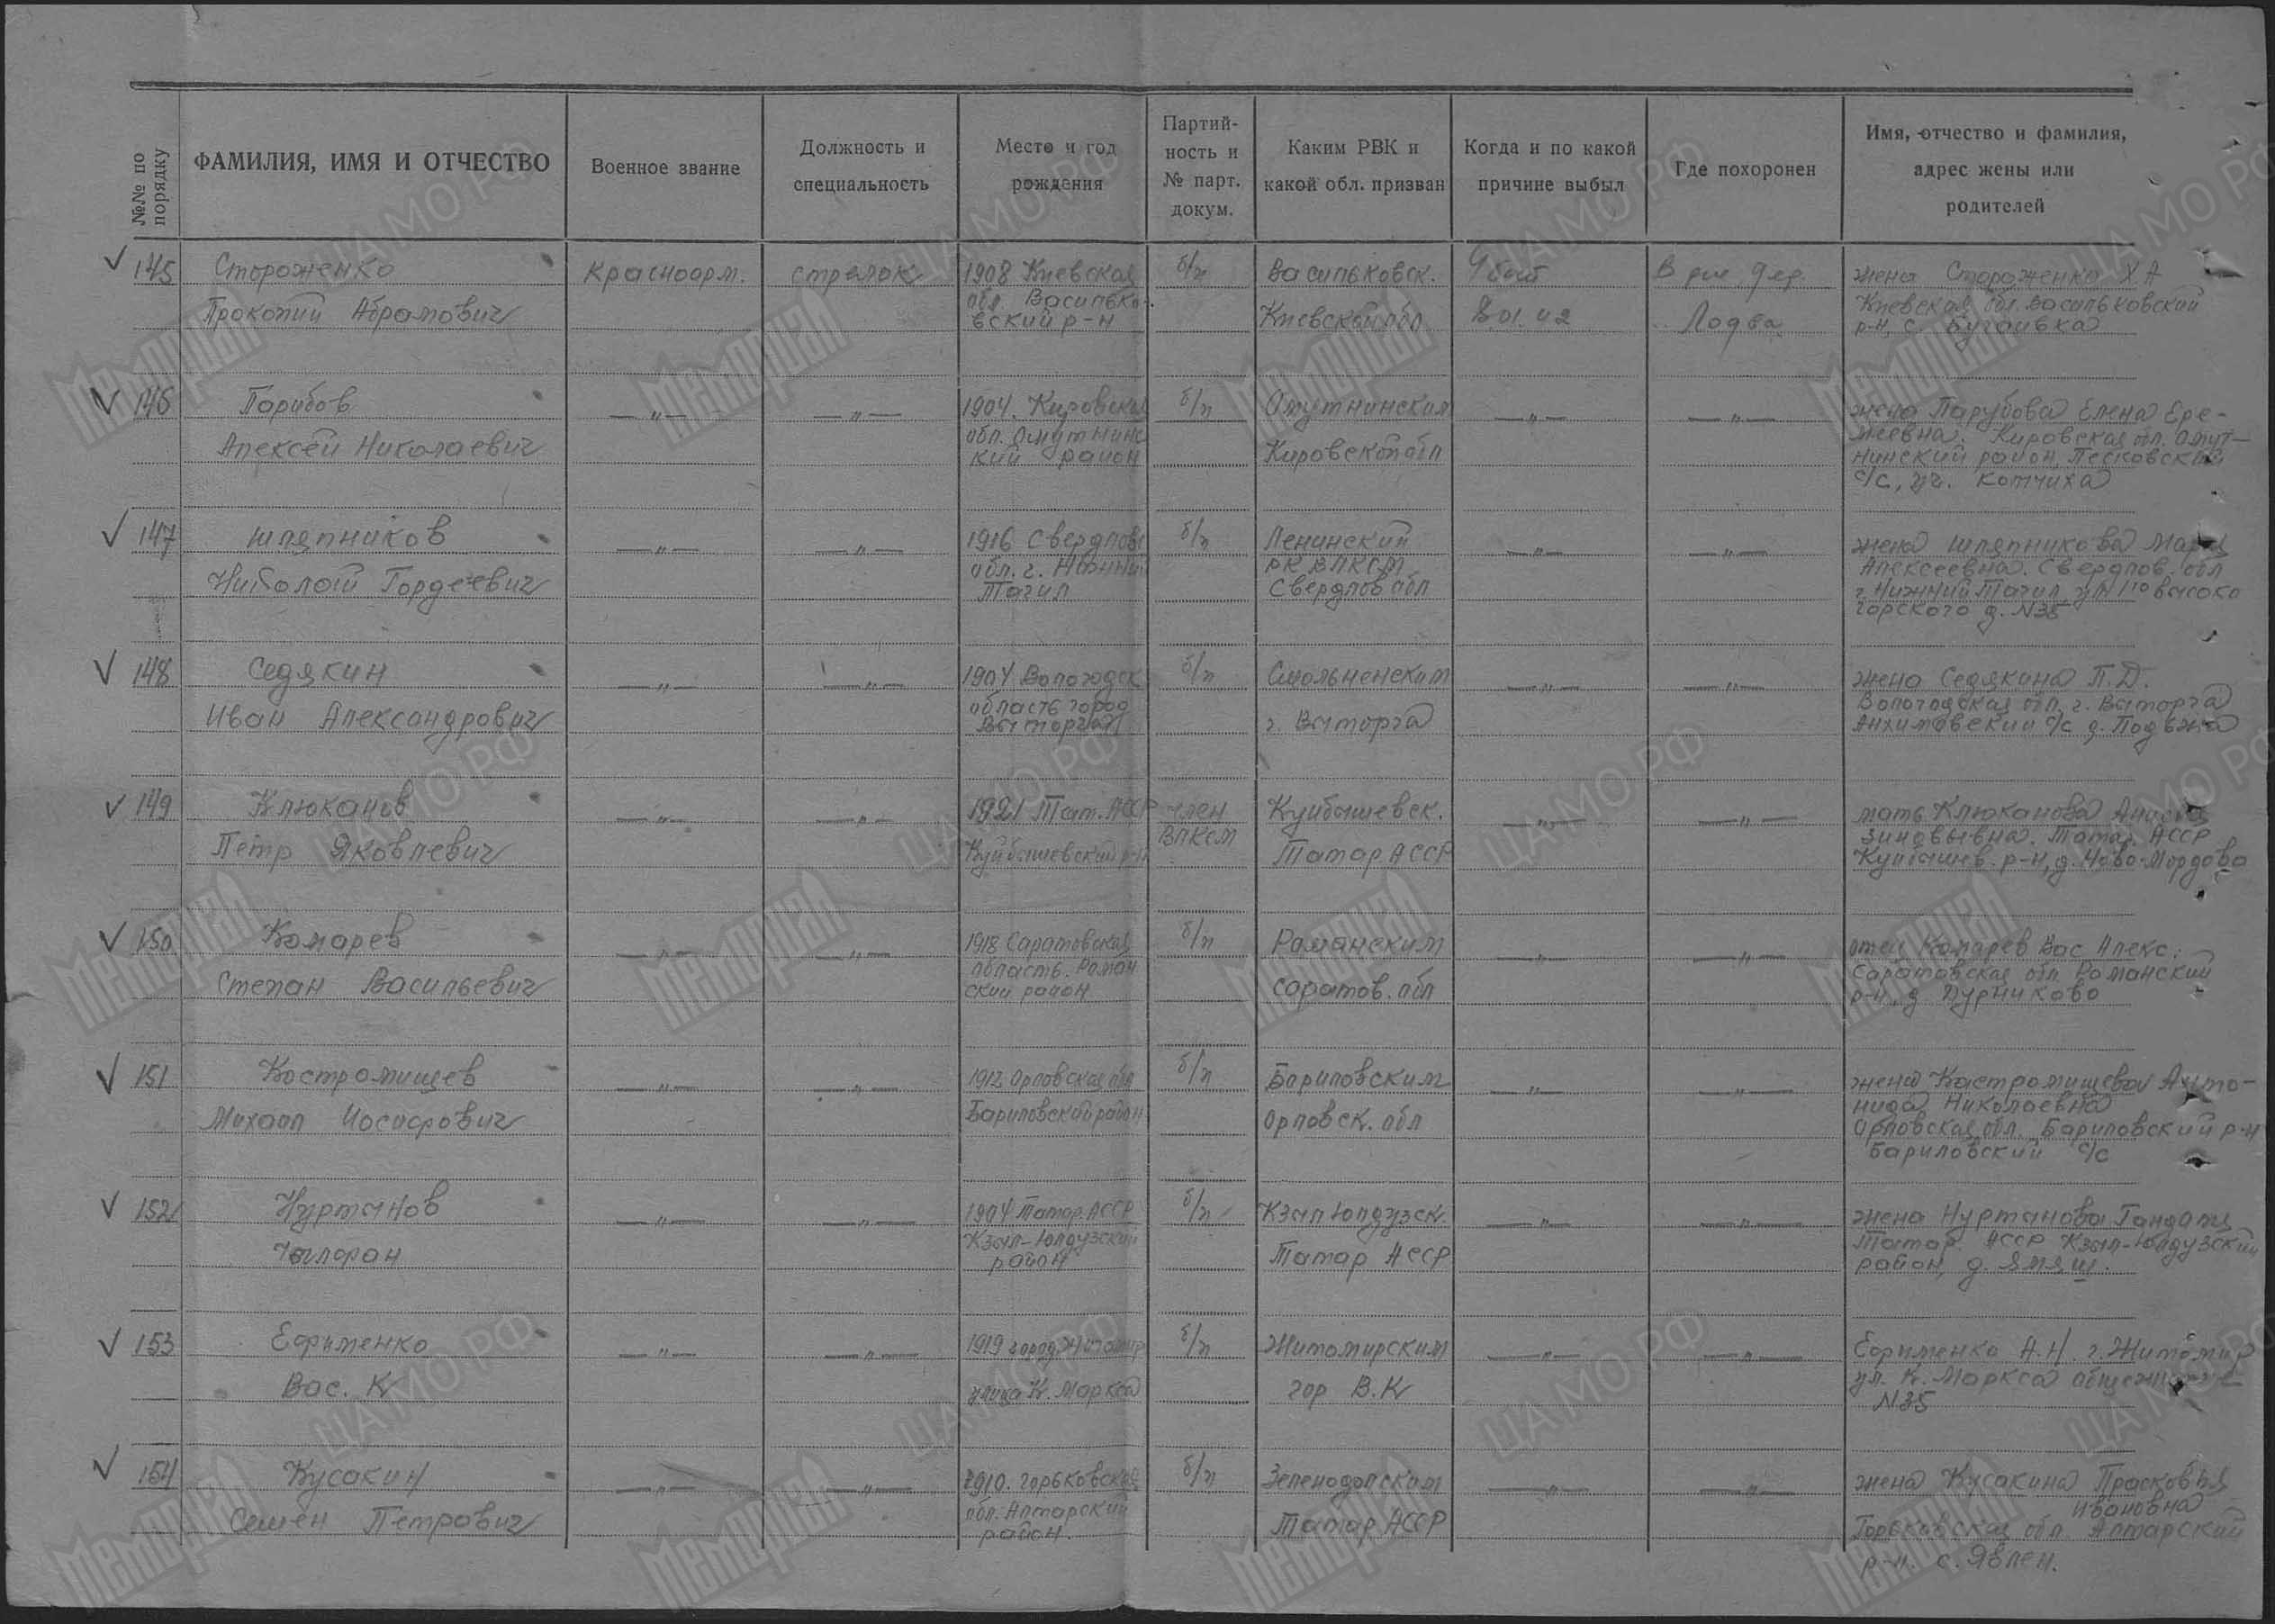 №№ по порядку
ФАМИЛИЯ, ИМЯ И ОТЧЕСТВО
Военное звание
Должность и
специальность
Место и год
рождения
Партий-
ность и
№ парт.
докум.
Каким РВК и
какой обл. призван
Когда и по какой
причине выбыл
Где похоронен
Имя, отчество и фамилия,
адрес жены или
родителей
145
Стороженко
Прокопий Абрамович
Красноарм.
стрелок
1908 Киевская
обл. Василько-
вский р-н
б/п
Васильковск.
Киевской обл
Убит
8.01.42
В дер.
Лодва
жена Стороженко Х А
Киевская обл. Васильковский
р-н, с. Бугаивка
146
Парибов
Алексей Николаевич
—"—
—"—
1904. Кировская
обл. Омутнинс
кий район
б/п
Омутнинским
Кировской обл
—"—
—"—
жена Парубова Елена Ере-
меевна. Кировская обл. Омут-
нинский район, Песковский
с/с, уч. Котчиха
147
Шляпников
Николай Гордеевич
—"—
—"—
1916 Свердлов
обл. г. Нижний
Тагил
б/п
Ленинский
РК ВЛКСМ
Свердлов обл
—"—
—"—
жена Шляпникова Мария
Алексеевна. Свердлов. обл
г. Нижний Тагил, ул
горского д. N35
148
Седякин
Иван Александрович
—"—
—"—
1904 Вологодск
область город
Вытогра
б/п
Смольненским
г. Выторга
—"—
—"—
жена Седякина П.Д.
Вологодская обл, г. Выторга
Анхимовский с/с д. Подвжа
149
Клюканов
Петр Яковлевич
—"—
—"—
1921 Тат. АССР
Куйбышевский р-н
член
ВЛКСМ
Куйбышевск.
Татар АССР
—"—
—"—
мать Клюканова
Зиновьевна. Татар. АССР
Куйбышев. р-н, д. Ново-Мордово
150
Комарев
Степан Васильевич
—"—
—"—
1918 Саратовская
область. Роман
ский район
б/п
Романским
Саратов. обл
—"—
—"—
отец Комарев Вас Алекс.
Саратовская обл Романский
р-н, д. Дурниково
151
Костромищев
Михаил Иосифович
—"—
—"—
1912 Орловская обл
Бариловский район
б/п
Бариловским
Орловск. обл
—"—
—"—
жена Костромищева Анто-
нида Николаевна
Орловская обл. Бариловский р-н
Бариловский с/с
152
Нуртанов
—"—
—"—
1904 Татар. АССР
Кзыл-Юлдузский
район
б/п
Кзыл Юлдузск.
Татар АССР
—"—
—"—
жена Нуртанова
Татар АССР Кзыл-Юлдузский
район, д. Ямяш.
153
Ефименко
Вас. К
—"—
—"—
1919 город Житомир
улица К. Маркса
б/п
Житомирским
гор В.К
—"—
—"—
Ефименко А.Н. г. Житомир
ул. К. Маркса общежитие
N35
154
Кусакин
Семен Петрович
—"—
—"—
1910. Горьковская
обл. Алтарский
район.
б/п
Зеленодольским
Татар АССР
—"—
—"—
жена Кусакина Прасковья
Ивановна
Горьковская обл Алтарский
р-н. с. Явлей.
Мемориал
ЦА МО РФ